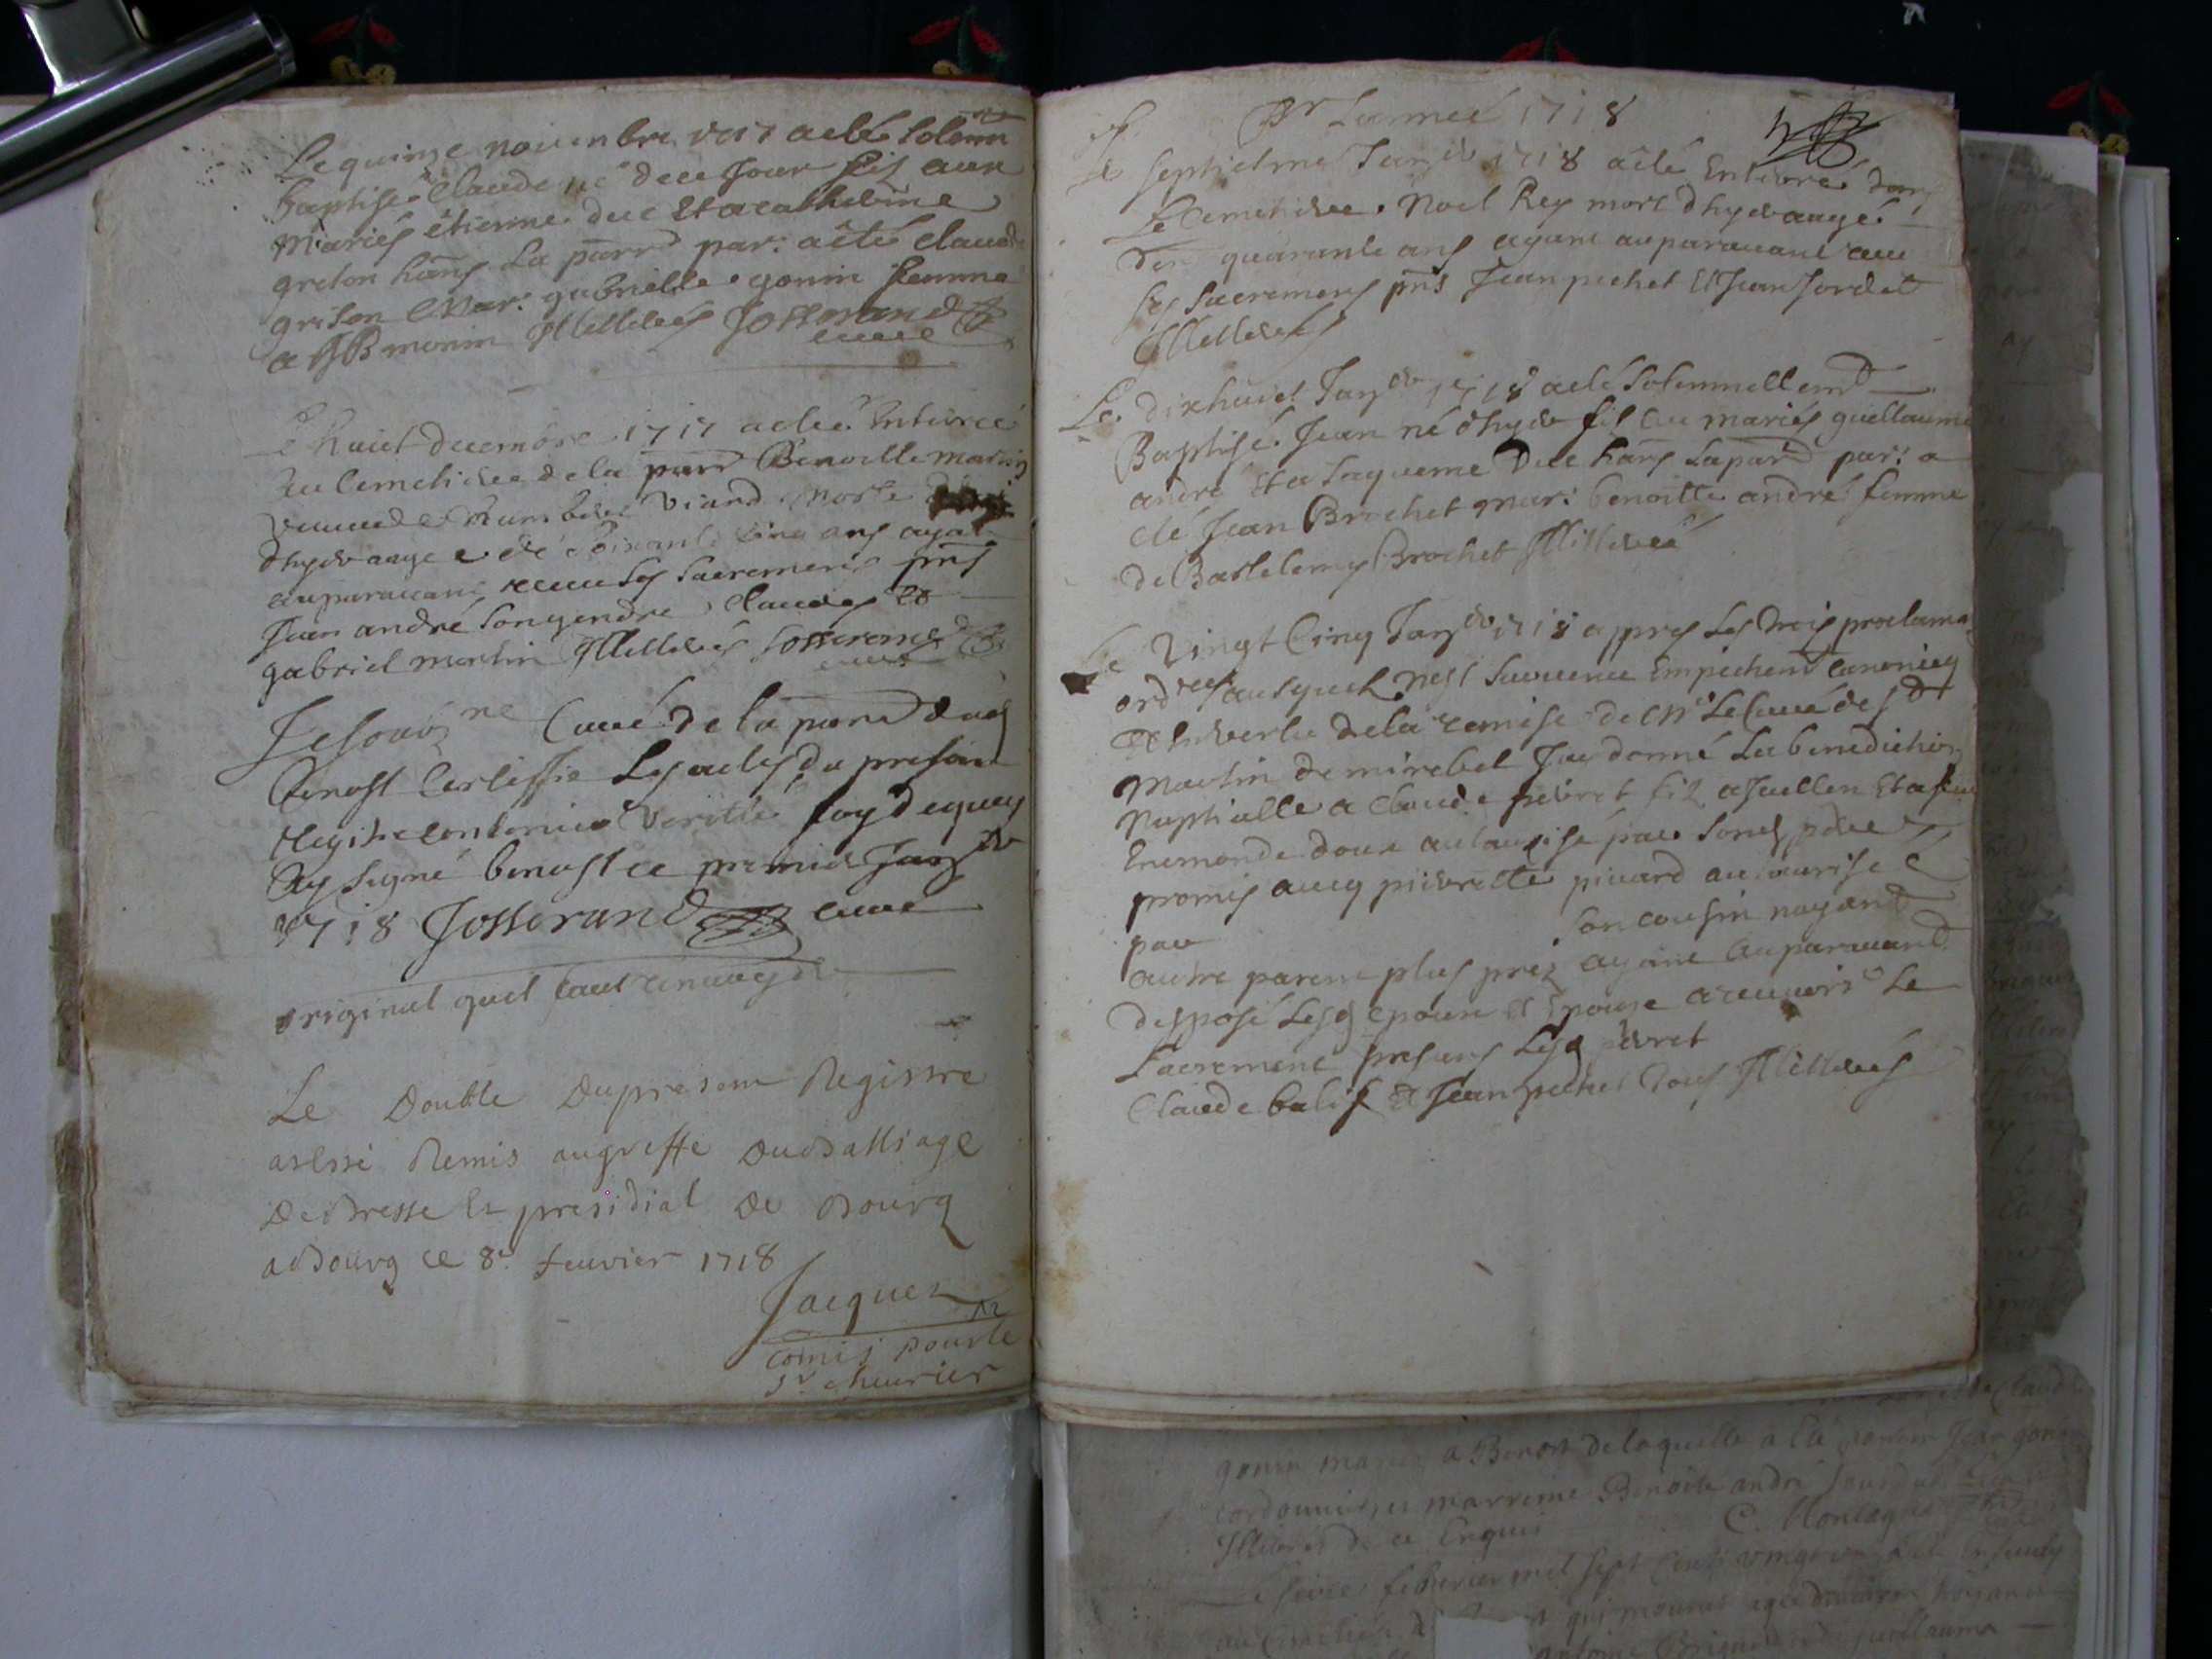 Le quinze novembre 1717 a eté solemn
baptisé Claude né de ce jour fils aux
mariés étienne duc et a catherine
greton hans la parr par: a été claude
greton Mar: gabrielle gonin femme
a JB monin Illitterés Josserand
curé
Le huict decembre 1717 a eté Enterrée
au Cemetiere de la parr Benoitte martin
veuve de humbert viard morte
dhyer aagee de soixante cinq ans ayat
auparavant receu les sacremens pnts
Jean andré son gendre Claude et
gabriel martin Illitterés Josserand
curé
Je soubne Curé de la parr dud
Benost Certiffie les actes du present
Registre contenir verité foy de quoy
Jay signé benost ce premier Janer
1718 Josserand curé
original quil faut envoyer
Le Double Dupresent Registre
a esté Remis au greffe Du Balliage
De Bresse Et presidial De Bourg
a Bourg ce 8e. feuvier 1718
Jacquet
Comis pour le
Sr cheurier
Pr Lannee 1718
Le septiesme Janer 1718 a été Enterré dans
Le Cemetiere Noel Rey mort dhyer aagé
den quarante ans ayant auparavant receu
les sacremens pnts Jean pechet et Jean Jordet
Illitterés
Le dixhuict Janer 1718 a eté solemnellemt
Baptisé Jean né dhyer fils aux mariés guillaume
andré et a Jaqueme Duc hans la parr par: a
eté Jean Brochet mar: benoitte andré femme
de Bartelemy Brochet Illitteré
Le Vingt Cinq Janer 1718 appres Les trois proclama
ordres ausquels nest survenu Empechemt canonicq
et en vertu de la remise de Mr Le Curé de st
Martin de mirebel Jay donné La benediction
Nuptialle a Claude pievret fils a Jullien et a feue
Enemonde doux authorisé par sond pere
promis avec pierrette pivard authorisee
par son cousin nayant
autre parent plus prez ayant auparavant
desposé lesd epoux et Epouse a recevoir Le
Sacrement presens Lesd pievret
Claude balif et Jean pechet tous Illitterés
a Benost de laquelle a été parrain Jean gonin
cordonnier et marreine Benoite andré
Illiteres de ce Enquis C. Montagne
fevrier mil sept Cent vingt
qui mourut agée denviron
guillaume